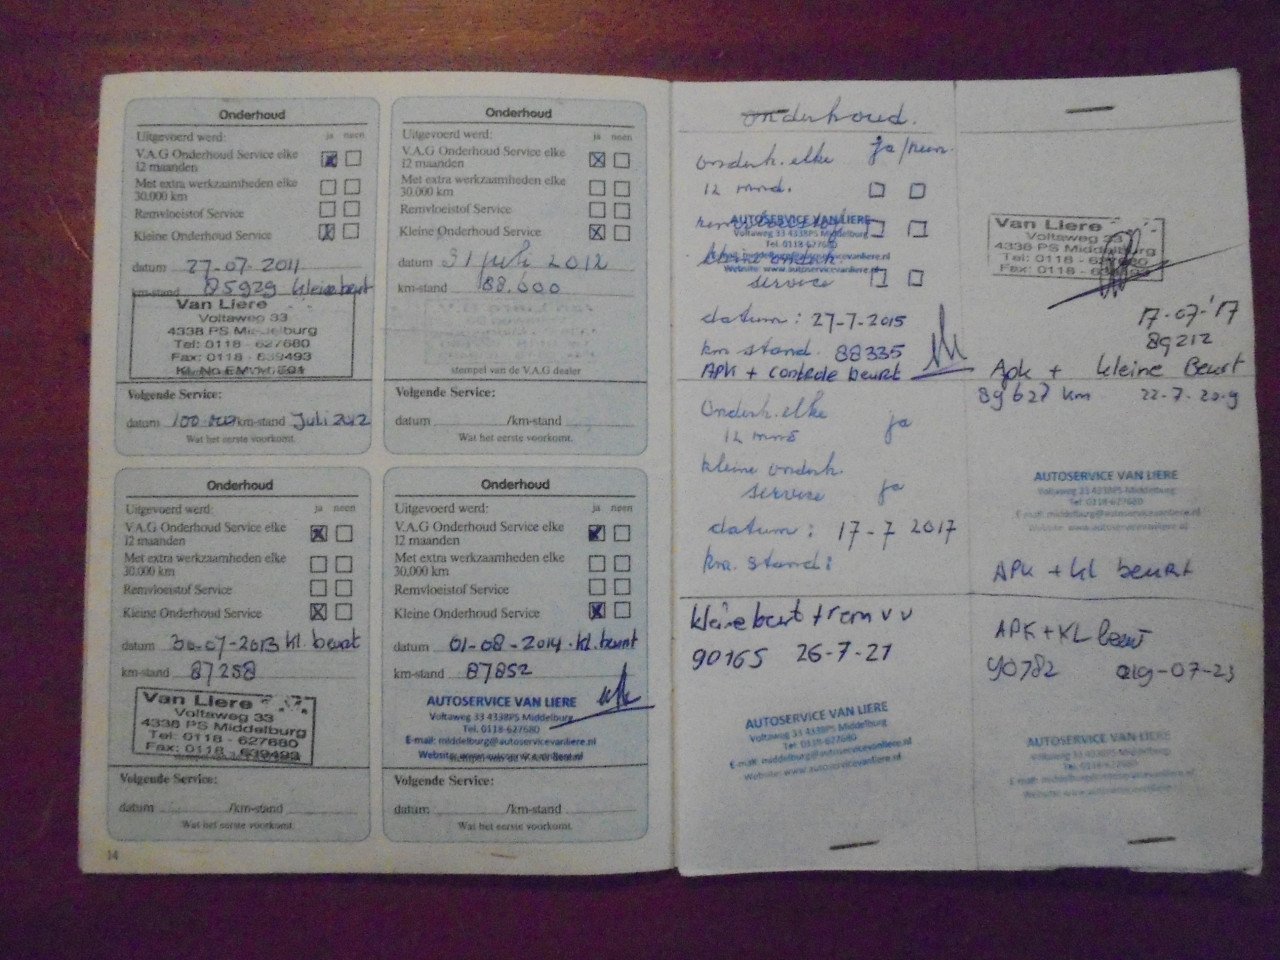 Onderhoud
Uitgevoerd werd: ja neen
V.A.G Onderhoud Service elke
12 maanden
Met extra werkzaamheden elke
30.000 km
Remvloeistof Service
Kleine Onderhoud Service
datum 27-07-2011
km-stand 85929 kleine beurt
Van Liere
Voltaweg 33
4338 PS Middelburg
Tel: 0118 - 627680
Fax: 0118 - 639493
Volgende Service:
datum 100.000 /km-stand Juli 2012
Wat het eerste voorkomt.
Onderhoud
Uitgevoerd werd: ja neen
V.A.G Onderhoud Service elke
12 maanden
Met extra werkzaamheden elke
30.000 km
Remvloeistof Service
Kleine Onderhoud Service
datum 31 juli 2012
km-stand 88.000
stempel van de V.A.G dealer
Volgende Service:
datum /km-stand
Wat het eerste voorkomt.
Onderhoud
Uitgevoerd werd: ja neen
V.A.G Onderhoud Service elke
12 maanden
Met extra werkzaamheden elke
30.000 km
Remvloeistof Service
Kleine Onderhoud Service
datum 30-07-2013 kl. beurt
km-stand 87258
Van Liere
Voltaweg 33
4338 PS Middelburg
Tel: 0118 - 627680
Fax: 0118 - 639493
Volgende Service:
datum /km-stand
Wat het eerste voorkomt.
Onderhoud
Uitgevoerd werd: ja neen
V.A.G Onderhoud Service elke
12 maanden
Met extra werkzaamheden elke
30.000 km
Remvloeistof Service
Kleine Onderhoud Service
datum 01-08-2014 kl. beurt
km-stand 87852
AUTOSERVICE VAN LIERE
Voltaweg 33 4338PS Middelburg
Tel. 0118-627680
E-mail: middelburg@autoservicevanliere.nl
Website: www.autoservicevanliere.nl
Volgende Service:
datum /km-stand
Wat het eerste voorkomt.
14
onderhoud.
onderh. elke ja/neen.
12 mnd.
AUTOSERVICE VAN LIERE
Voltaweg 33 4338PS Middelburg
Tel. 0118-627680
E-mail: middelburg@autoservicevanliere.nl
Website: www.autoservicevanliere.nl
service
datum: 27-7-2015
km stand. 88335
APK + controle beurt
Onderh. elke
12 mnd ja
kleine onderh.
service ja
datum: 17-7 2017
km. stand:
kleine beurt + rem vv
90165 26-7-21
AUTOSERVICE VAN LIERE
Voltaweg 33 4338PS Middelburg
Tel. 0118-627680
E-mail: middelburg@autoservicevanliere.nl
Website: www.autoservicevanliere.nl
Van Liere
Voltaweg 33
4338 PS Middelburg
Tel: 0118 - 627680
Fax: 0118 - 639493
17-07-'17
89212
Apk + kleine Beurt
89627 km 22-7-2019
AUTOSERVICE VAN LIERE
Voltaweg 33 4338PS Middelburg
Tel. 0118-627680
E-mail: middelburg@autoservicevanliere.nl
Website: www.autoservicevanliere.nl
APK + kl beurt
APK + KL beurt
90782 019-07-23
AUTOSERVICE VAN LIERE
Voltaweg 33 4338PS Middelburg
Tel. 0118-627680
E-mail: middelburg@autoservicevanliere.nl
Website: www.autoservicevanliere.nl